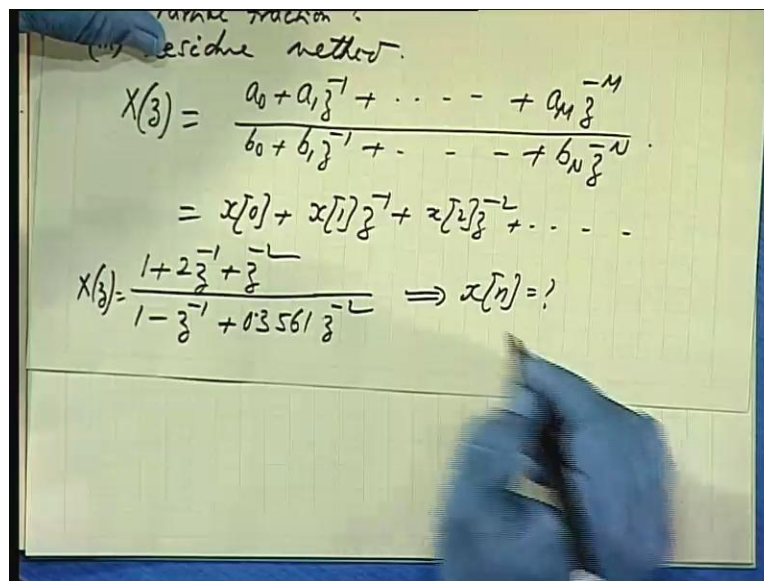 fraction
(iii) Residue method.
X(z) = (a₀ + a₁z⁻¹ + . . . . - - + a_M z^-M) / (b₀ + b₁z⁻¹ + . - - - + b_N z^-N) .
= x[0] + x[1]z⁻¹ + x[2]z⁻² + . . . .
X(z) = (1 + 2z⁻¹ + z⁻²) / (1 - z⁻¹ + 0.3561z⁻²) ⟹ x[n] = ?